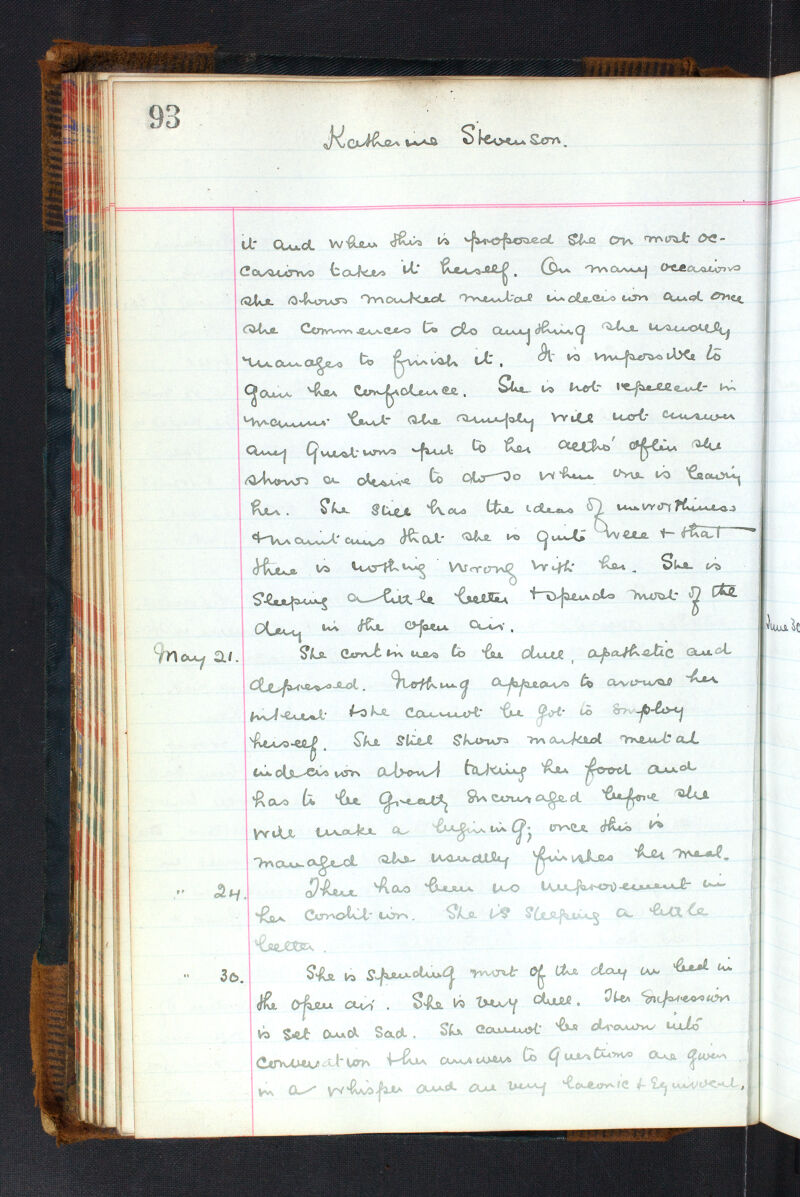 93
Katherine Stevenson.
it and when this is proposed she on most oc-
casions takes it herself. On many occasions
she shows marked mental indecision and once
she commences to do anything she usually
manages to finish it. It is impossible to
gain her confidence. She is not repellent in
manner but she simply will not answer
any questions put to her altho' often she
shows a desire to do so when one is leaving
her. She still has the ideas of unworthiness
& maintains that she is quite well & that
there is nothing wrong with her. She is
sleeping a little better & spends most of the
day in the open air.
May 21. She continues to be dull, apathetic and
depressed. Nothing appears to arouse her
interest & she cannot be got to employ
herself. She still shows marked mental
indecision about taking her food and
has to be greatly encouraged before she
will make a begining; once this is
managed she usually finishes her meal.
" 24. There has been no improvement in
her condition. She is sleeping a little
better.
" 30. She is spending most of the day in bed in
the open air. She is very dull. Her expression
is set and sad. She cannot be drawn into
conversation & her answers to questions are given
in a whisper and are very laconic & equivocal.
June 30